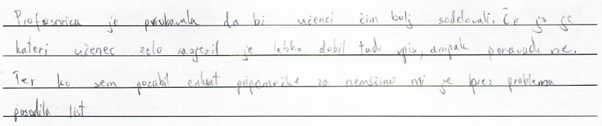 Profesorica je poskušavala da bi učenci čim bolj sodelovali. Če jo je
kateri učenec zelo razjezil je lahko dobil tudi vpis, ampak ponavadi ne.
Ter ko sem pozabil enkrat pripomočke za nemščino mi je brez problema
posodila list